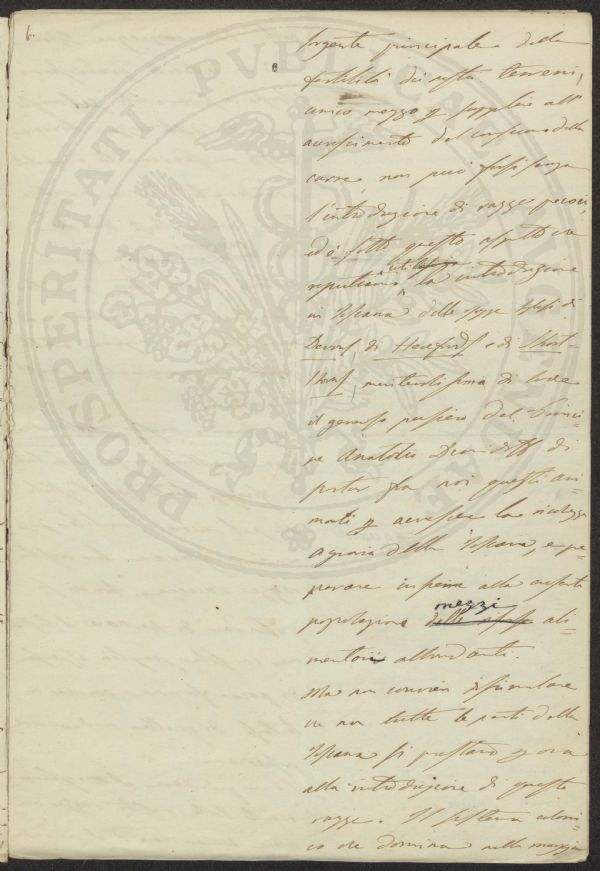 6.
sorgente principale della
fertilità dei nostri terreni,
unico mezzo p supplire all'
accrescimento del consumo della
carne, non può farsi senza
l'introduzione di razze precoci,
ed è sotto questo aspetto che
reputiamo utile la introduzione
in Toscana delle razze Inglesi di
Devon, di Hereford e di Short-
Horn, meritando di lode
il generoso pensiero del Princi-
pe Anatolio Demidoff di
portar fra noi questi ani-
mali p accrescere la ricchezza
agraria della Toscana, e pre-
parare insieme alla cresciuta
popolazione mezzi ali-
mentari abbondanti.
Ma non conviene dissimulare
che non tutte le parti della
Toscana si prestano p ora
alla introduzione di queste
razze. Il sistema coloni-
co che domina nella maggior
PROSPERITATI PVBLICAE AVGENDAE